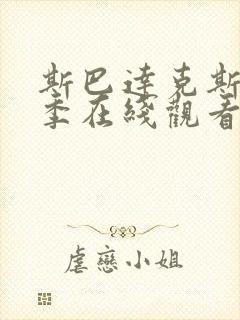 斯巴達克斯
季在綫觀看
虐戀小姐